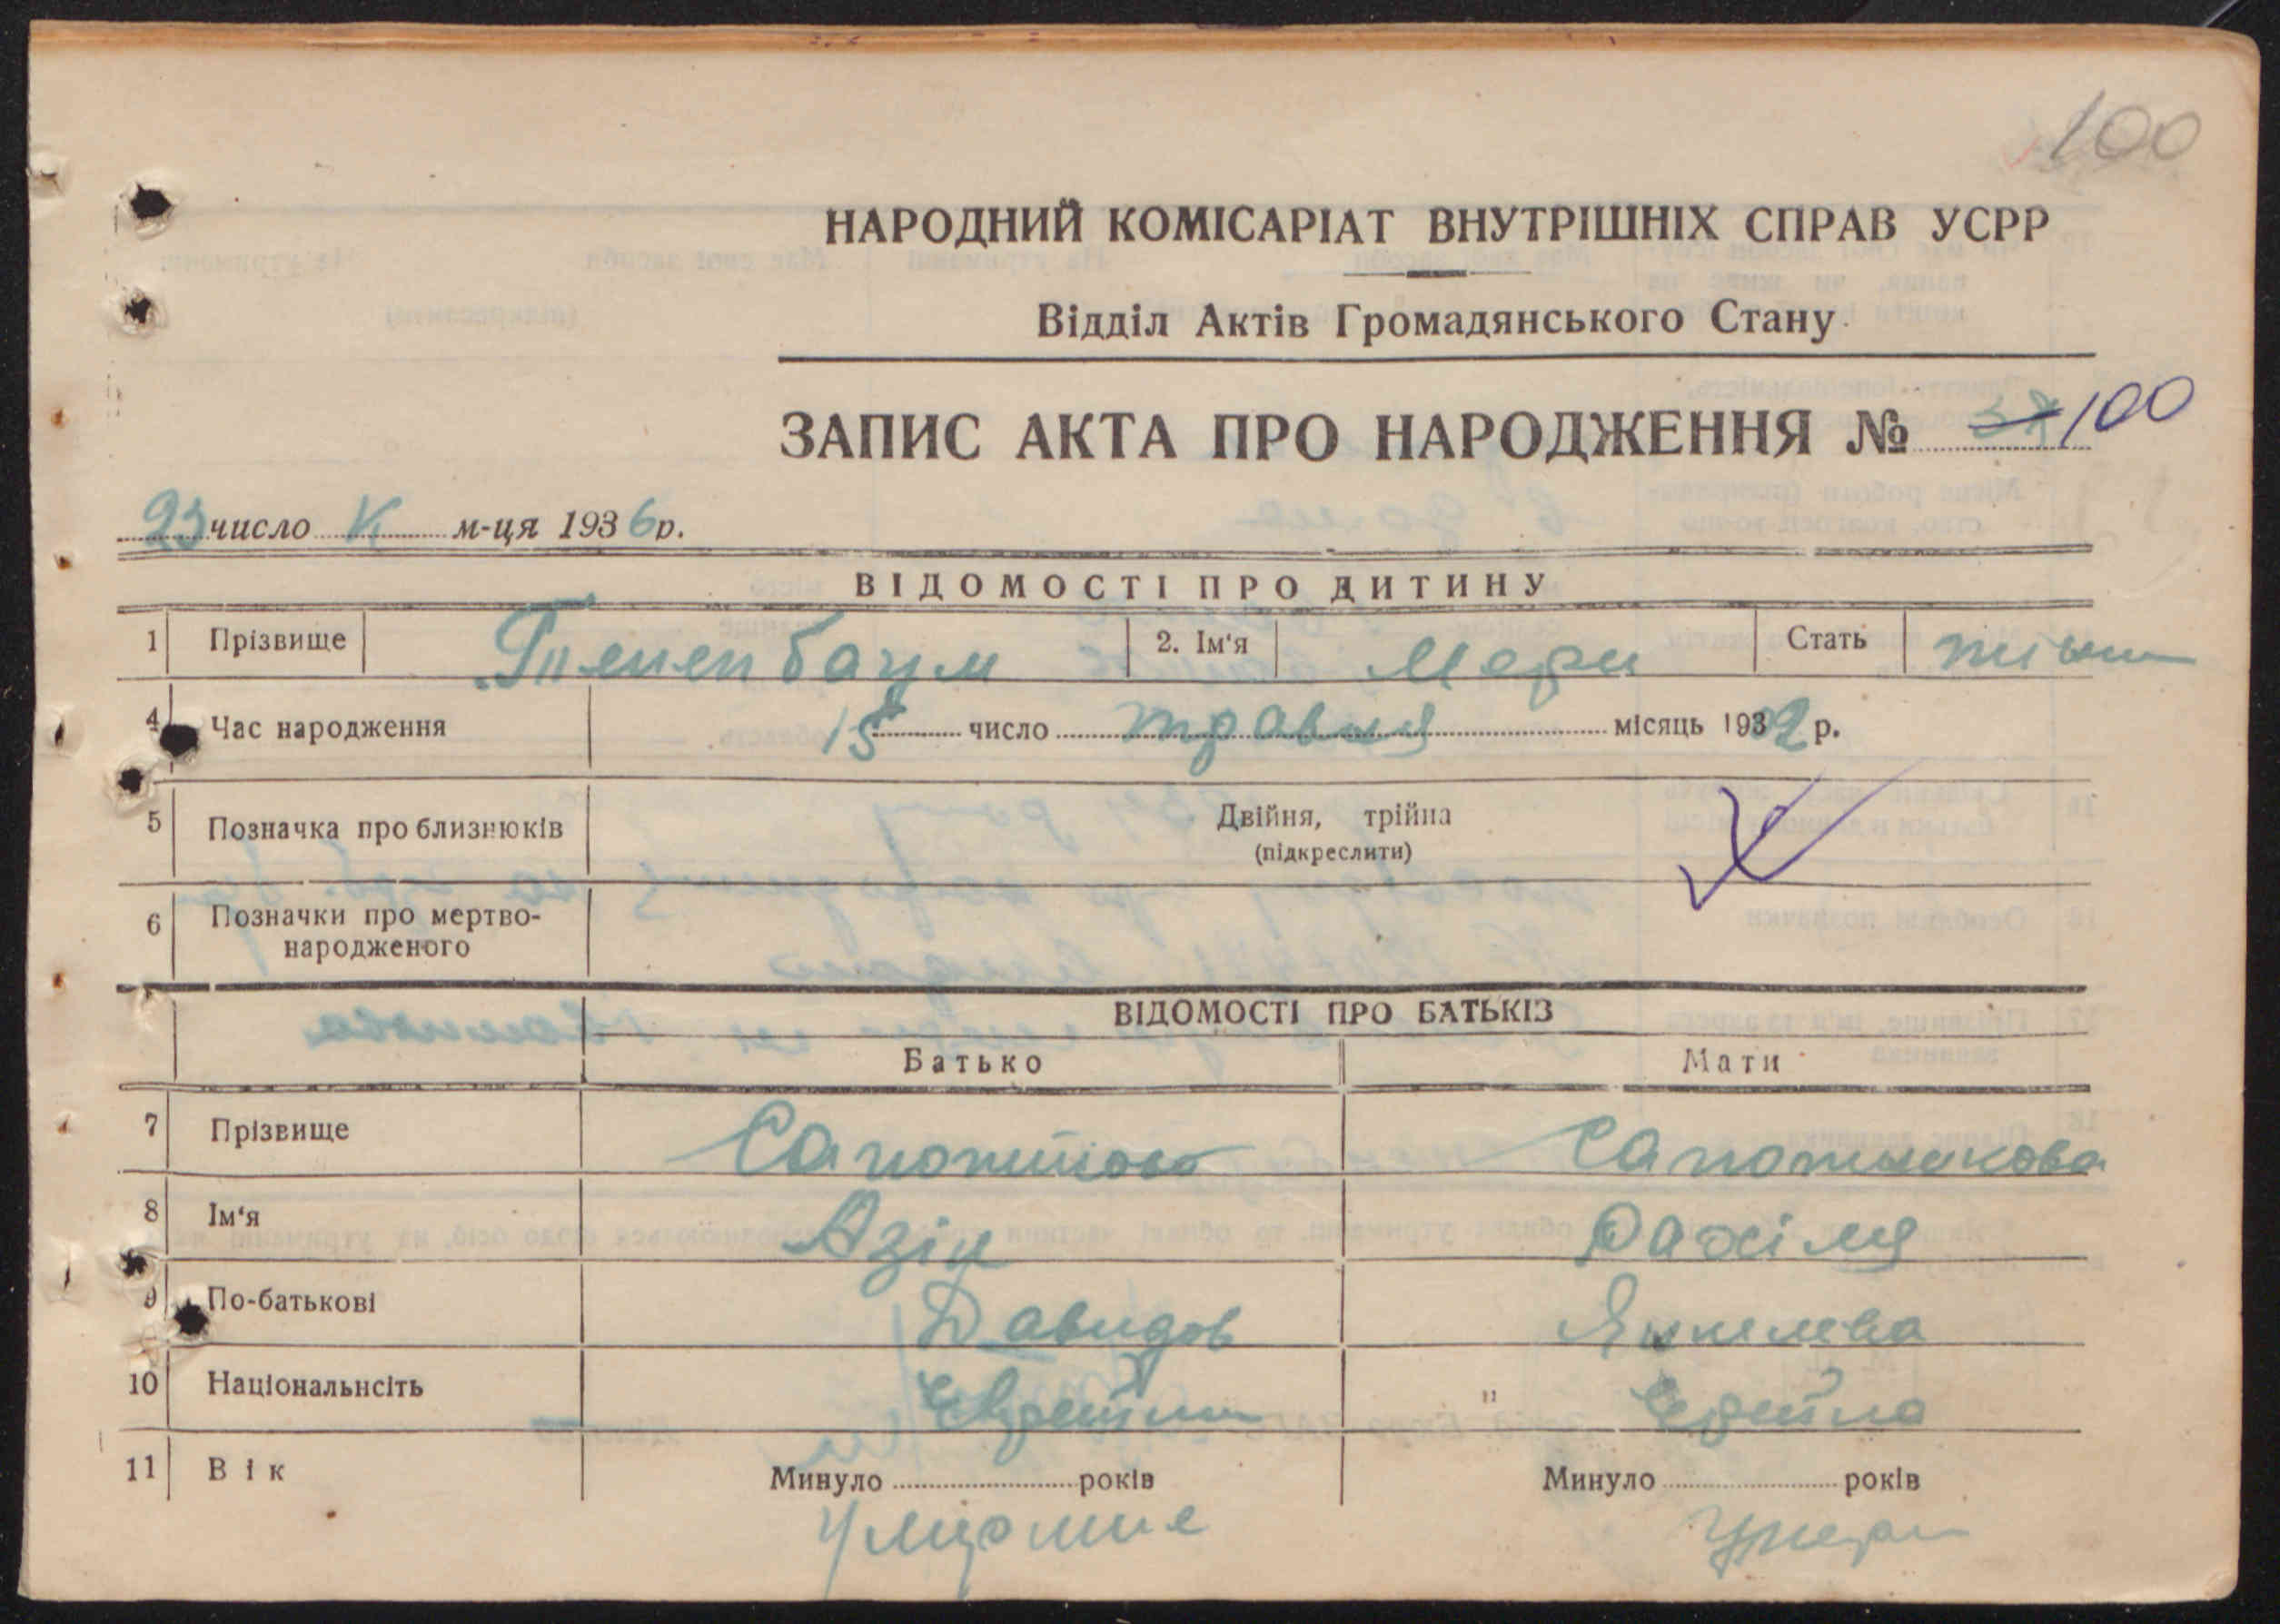 100
НАРОДНИЙ КОМІСАРІАТ ВНУТРІШНІХ СПРАВ УСРР
Відділ Актів Громадянського Стану
ЗАПИС АКТА ПРО НАРОДЖЕННЯ № 37 100
23 число м-ця 1936 р.
ВІДОМОСТІ ПРО ДИТИНУ
1 Прізвище Тененбаум 2. Ім'я Мери Стать
4 Час народження 15 число травня місяць 1932 р.
5 Позначка про близнюків Двійня, трійна
(підкреслити)
6 Позначки про мертво-
народженого
ВІДОМОСТІ ПРО БАТЬКІЗ
Батько Мати
7 Прізвище Сапожникова
8 Ім'я Азік Рахіля
9 По-батькові Давидов Янкелева
10 Національнсіть "
11 Вік Минуло років Минуло років